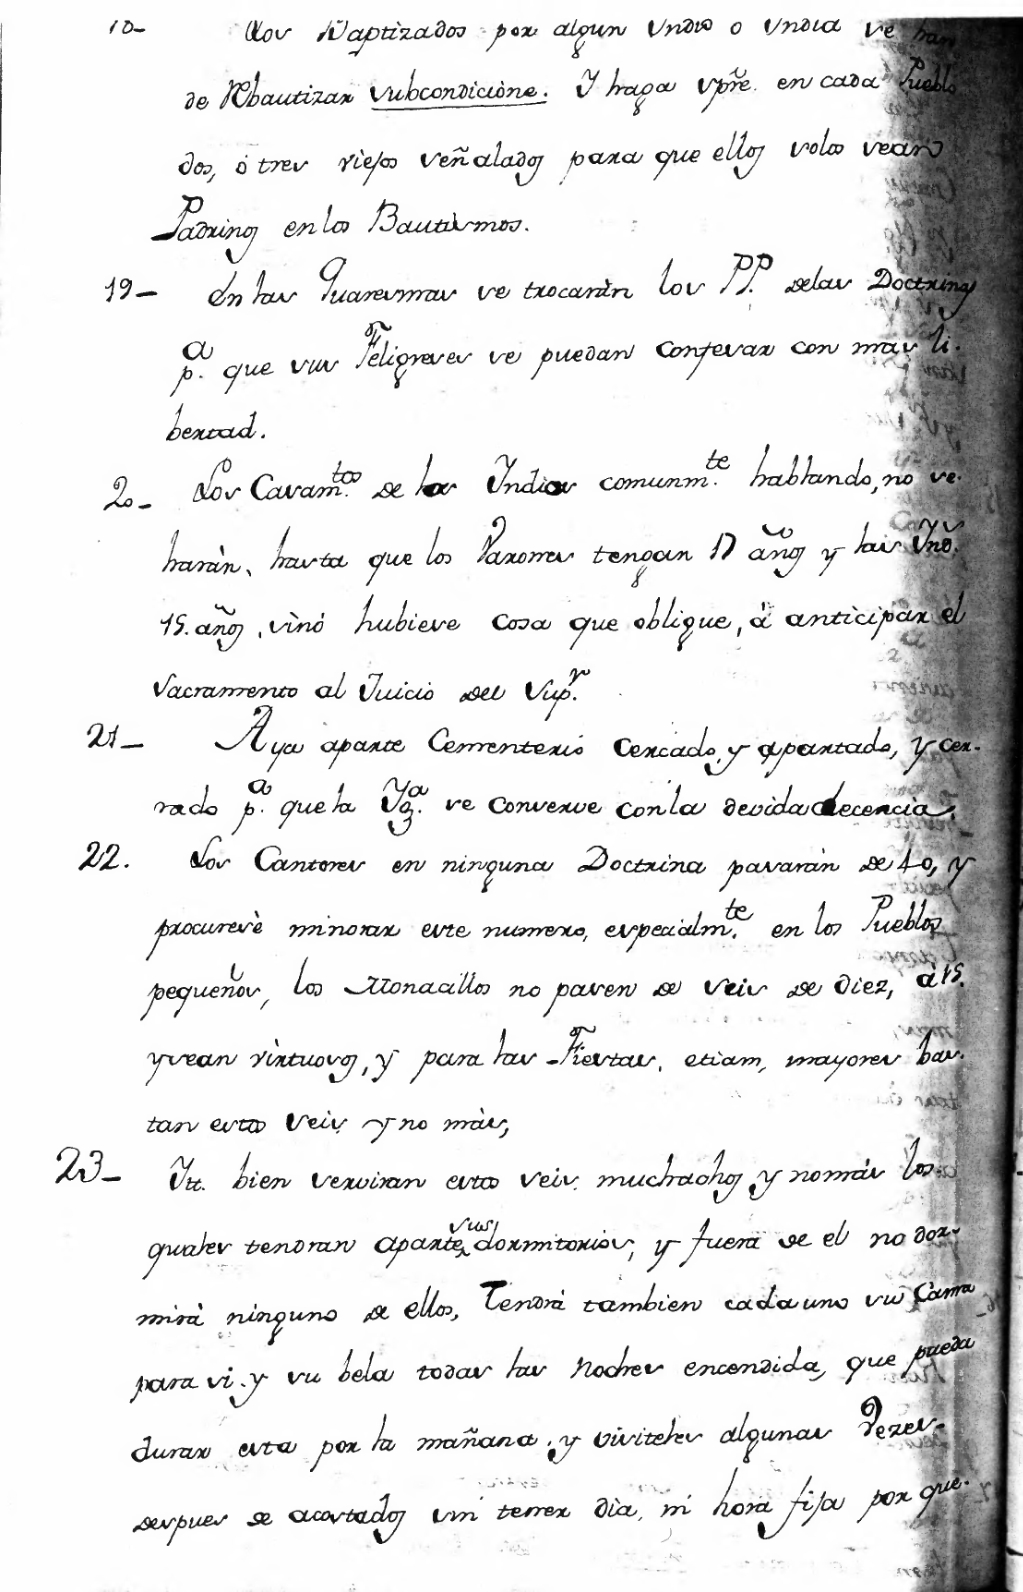 18- Los Baptizados por algun Yndio o Yndia se han
de Rebautizar subcondicione. Y haga spre. en cada Pueblo
dos, ò tres viejos señalados para que ellos solos sean
Padrinos en los Bautismos.
19- En las Quaresmas se trocaràn los PP. delas Doctrinas
pa. que sus Feligreses se puedan confesar con mas li-
bertad.
20- Los Casamtos. de los Indios comunmte. hablando, no se
haràn, hasta que los Varones tengan 17 años y las Yns.
15. años, sinò hubiese cosa que obligue, à anticipar el
Sacramento al Juicio del Supr.
21- Aya aparte Cementerio cercado, y apartado, y cer-
rado pa. que la Yga. se conserve con la devida decencia.
22. Los Cantores en ninguna Doctrina pasaràn de 40, y
procuresè minorar este numero, especialmte. en los Pueblos
pequeños, los Monacillos no pasen de seis de diez, à 15.
y sean virtuosos, y para las Fiestas, etiam, mayores bas-
tan estos seis y no màs,
23- Itt. bien serviran estos seis muchachos y no màs los
quales tendran aparte sus dormitorios, y fuera de el no dor-
mirà ninguno de ellos, Tendrà tambien cada uno su Cama
para si y su bela todas las Noches encendida, que pueda
durar esta por la mañana, y visiteles algunas Vezes
despues de acostados sin tener dia, ni hora fija por que